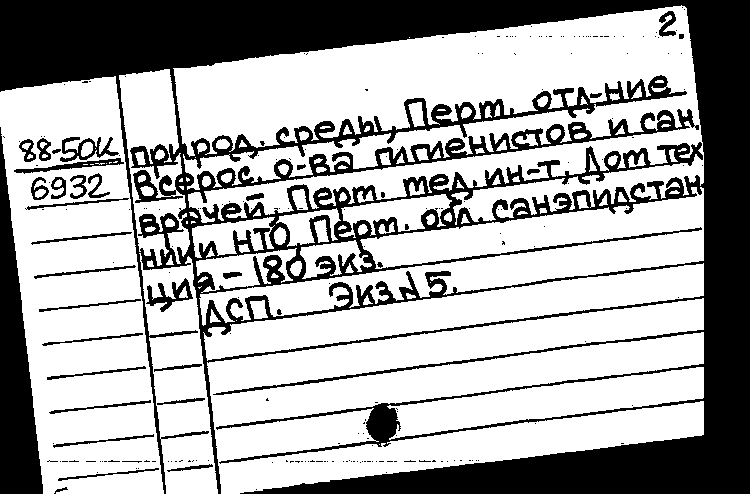 2.
88-50К
6932
природ. среды, Перт. отд-ние
Всерос. о-ва гигиенистов и сан.
врачей, Перт. тед. ин-т, Дот тех
нии НТО, Перт. обл. санэпидстан-
ция. - 180 экз.
ДСП. Экз № 5.